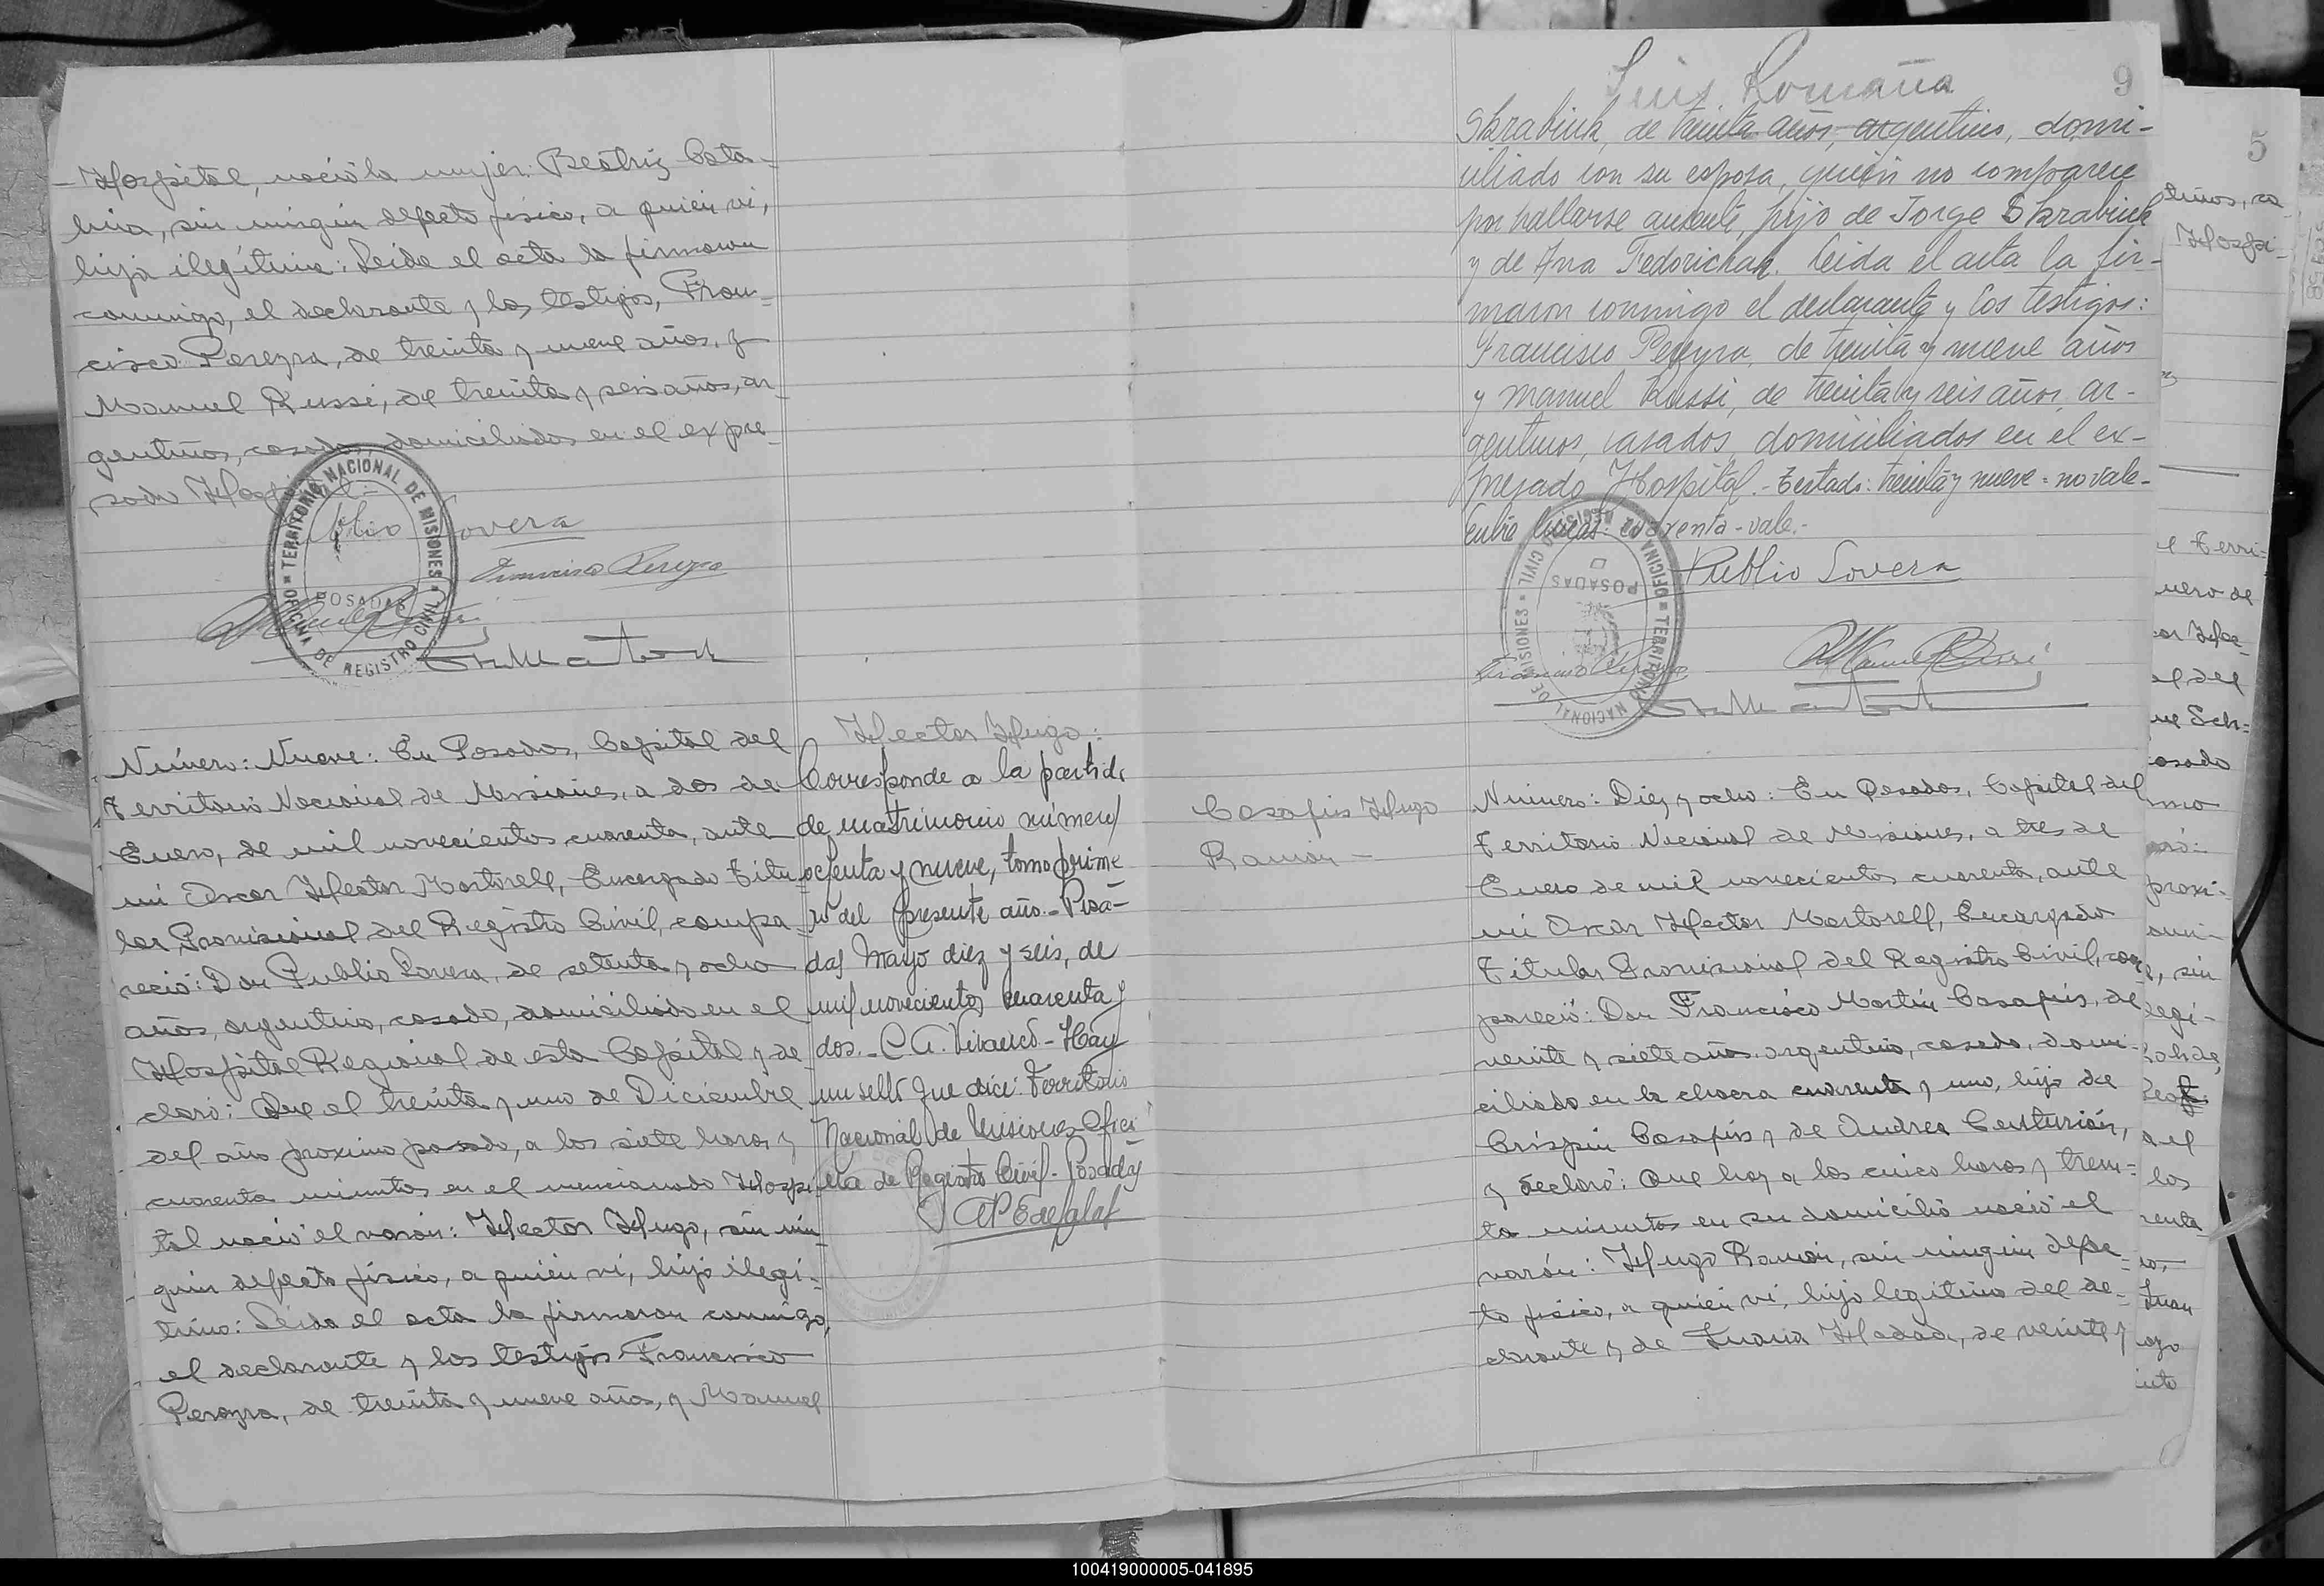 Hospital, nació la mujer: Beatriz Cata-
lina, sin ningún defecto físico, a quien ví,
hija ilegítima: Leida el acta la firmaron
conmigo, el declarante y los testigos, Fran-
cisco Pereyra, de treinta y nueve años, y
Manuel Russi, de treinta y seis años, ar
gentinos, casados, domiciliados en el expre
sado Hospital=
Publio Lovera
Francisco Pereyra
TERRITORIO NACIONAL DE MISIONES = OFICINA DE REGISTRO CIVIL =
POSADAS
Número: Nueve: En Posadas, Capital del
Territorio Nacional de Misiones, a dos de
Enero, de mil novecientos cuarenta, ante
mi Oscar Hector Martorell, Encargado Titu
lar Provisional del Registro Civil, compa
reció: Don Publio Lovera, de setenta y ocho
años, argentino, casado, domiciliado en el
Hospital Regional de esta Capital y de
claró: Que el treinta y uno de Diciembre
del año proximo pasado, a las siete horas y
cuarenta minutos en el mencionado Hospi
tal nació el varón: Hector Hugo, sin nin
gún defecto físico, a quien ví, hijo ilegí-
timo: Leida el acta la firmaron conmigo,
el declarante y los testigos Francisco
Pereyra, de treinta y nueve años, y Manuel
Hector Hugo:
Corresponde a la partida
de matrimonio número
ochenta y nueve, tomo prime
ro del presente año.- Posa-
das Mayo diez y seis, de
mil novecientos cuarenta y
dos.- C. A. Vivanco - Hay
un sello que dice: Territorio
Nacional de Misiones-Ofici
na de Registro Civil - Posadas
Luis Romaña
9
Skrabiuk, de treinta años, argentino, domi-
ciliado con su esposa, quien no comparece
por hallarse ausente, hijo de Jorge Skrabiuk
y de Ana Fedorichak. Leida el acta la fir-
maron conmigo el declarante y los testigos:
Francisco Pereyra, de treinta y nueve años
y Manuel Russi, de treinta y seis años, ar-
gentinos, casados, domiciliados en el ex-
presado Hospital.- Testado: treinta y nueve = no vale-
Entre lineas: cuarenta-vale.-
Publio Lovera
Francisco Pereyra
Manuel Russi
OFICINA DE REGISTRO CIVIL = TERRITORIO NACIONAL DE MISIONES =
POSADAS
Casafús Hugo
Ramón -
Número: Diez y ocho: En Posadas, Capital del
Territorio Nacional de Misiones, a tres de
Enero de mil novecientos cuarenta, ante
mi Oscar Hector Martorell, Encargado
Titular Provisional del Registro Civil, com
pareció: Don Francisco Martín Casafús, de
veinte y siete años argentino, casado, domi-
ciliado en la chacra cuarenta y uno, hijo de
Crispín Casafús y de Andrea Centurión,
y declaró: Que hoy a las cinco horas y trein=
ta minutos en su domicilio nació el
varón: Hugo Ramón, sin ningún defec=
to físico, a quien ví, hijo legítimo del de-
clarante y de Juana Hadad, de veinte y
5
tinos, ca
Hospi-
100419000005-041895